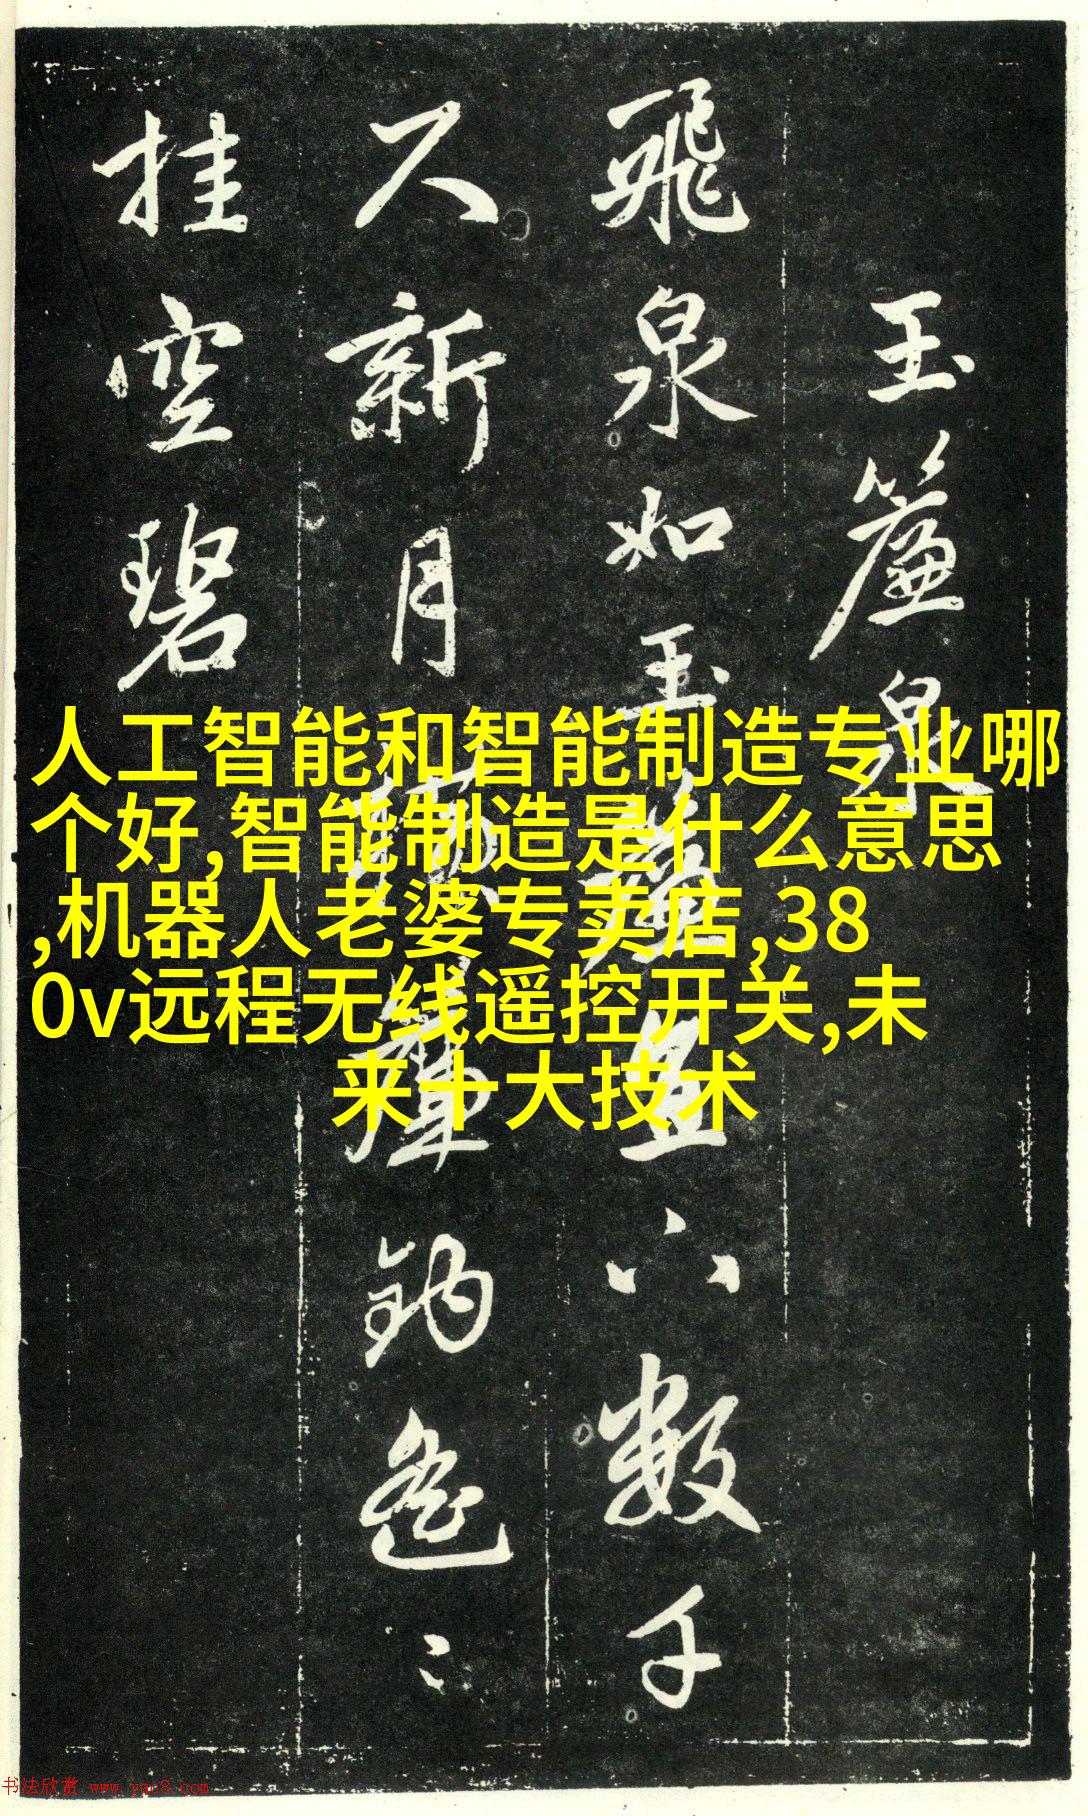 玉簾泉
飛泉如玉簾直下數千
尺新月橫簾鈎遙〻
挂空碧
人工智能和智能制造专业哪
个好,智能制造是什么意思
,机器人老婆专卖店,38
0v远程无线遥控开关,未
来十大技术
书法欣赏 www.yac8.com